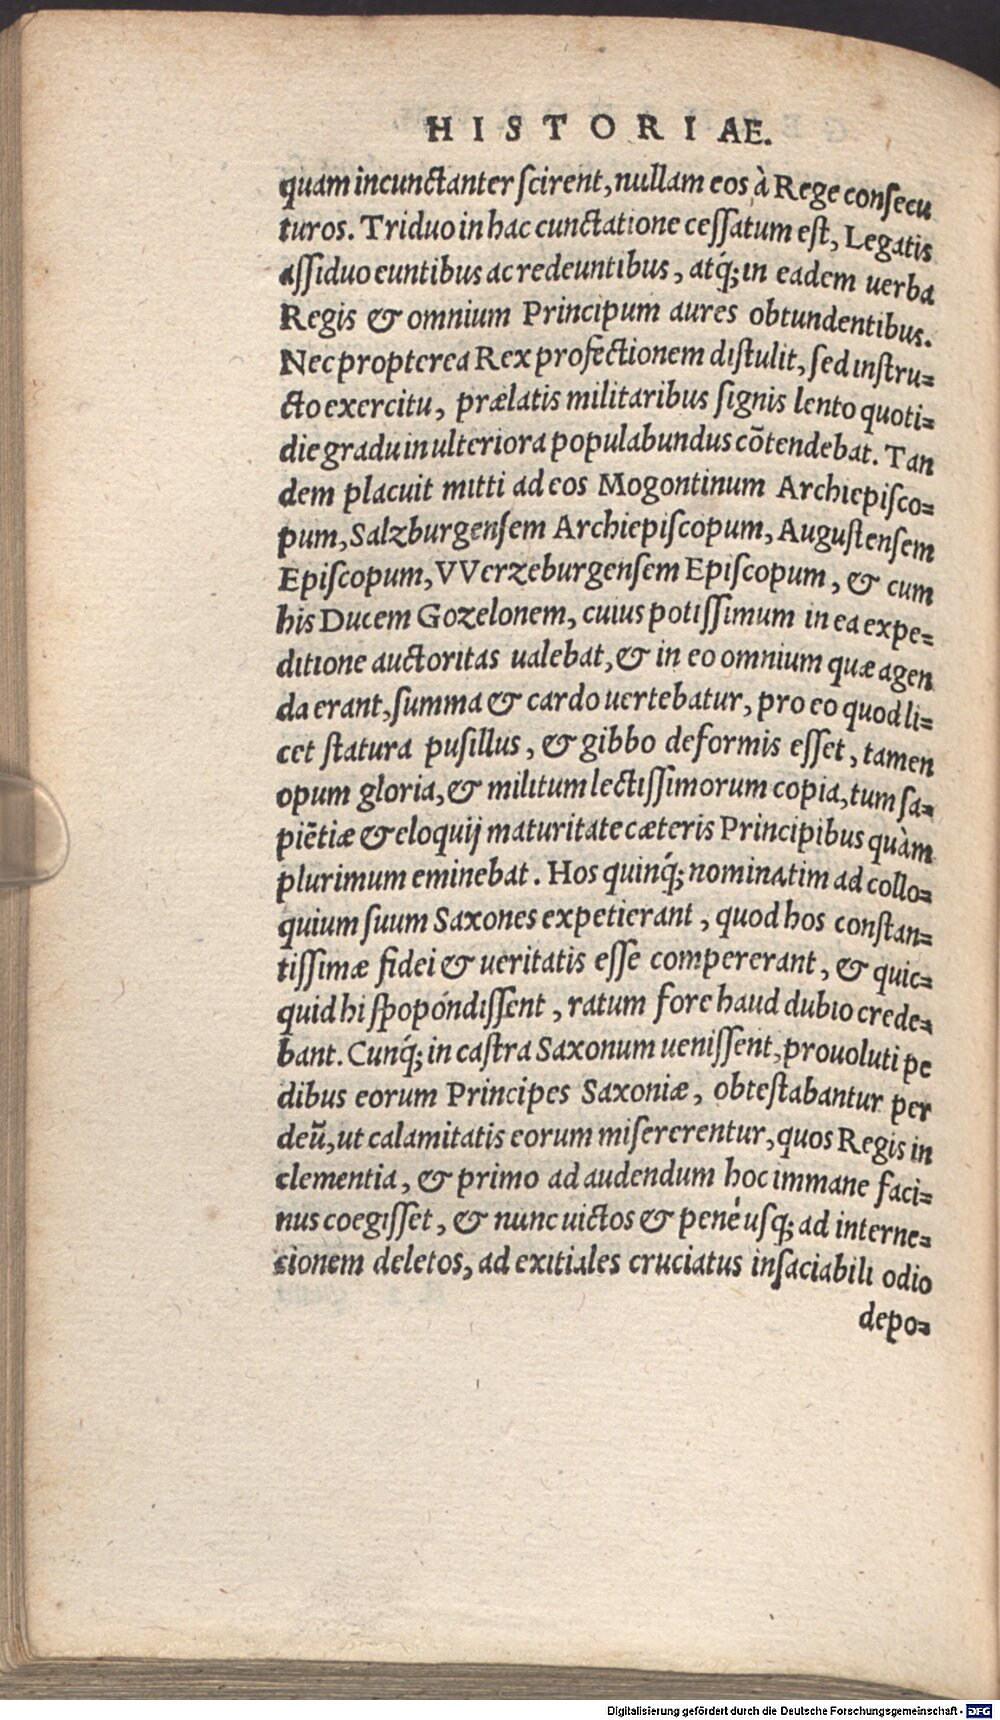 HISTORIAE.
quam incunctanter scirent, nullam eos à Rege consecu
turos. Triduo in hac cunctatione cessatum est, Legatis
assiduo euntibus ac redeuntibus, atq́; in eadem uerba
Regis & omnium Principum aures obtundentibus.
Nec propterea Rex profectionem distulit, sed instru=
cto exercitu, prælatis militaribus signis lento quoti=
die gradu in ulteriora populabundus cõtendebat. Tan
dem placuit mitti ad eos Mogontinum Archiepisco=
pum, Salzburgensem Archiepiscopum, Augustensem
Episcopum, VVerzeburgensem Episcopum, & cum
his Ducem Gozelonem, cuius potissimum in ea expe=
ditione auctoritas ualebat, & in eo omnium quæ agen
da erant, summa & cardo uertebatur, pro eo quod li=
cet statura pusillus, & gibbo deformis esset, tamen
opum gloria, & militum lectissimorum copia, tum sa=
piẽtiæ & eloquij maturitate cæteris Principibus quàm
plurimum eminebat. Hos quinq́; nominatim ad collo=
quium suum Saxones expetierant, quod hos constan=
tissimæ fidei & ueritatis esse compererant, & quic=
quid hi spopóndissent, ratum fore haud dubio crede=
bant. Cunq́; in castra Saxonum uenissent, prouoluti pe
dibus eorum Principes Saxoniæ, obtestabantur per
deũ, ut calamitatis eorum misererentur, quos Regis in
clementia, & primo ad audendum hoc immane faci=
nus coegisset, & nunc uictos & penè usq; ad interne=
cionem deletos, ad exitiales cruciatus insaciabili odio
depo=
Digitalisierung gefördert durch die Deutsche Forschungsgemeinschaft - DFG